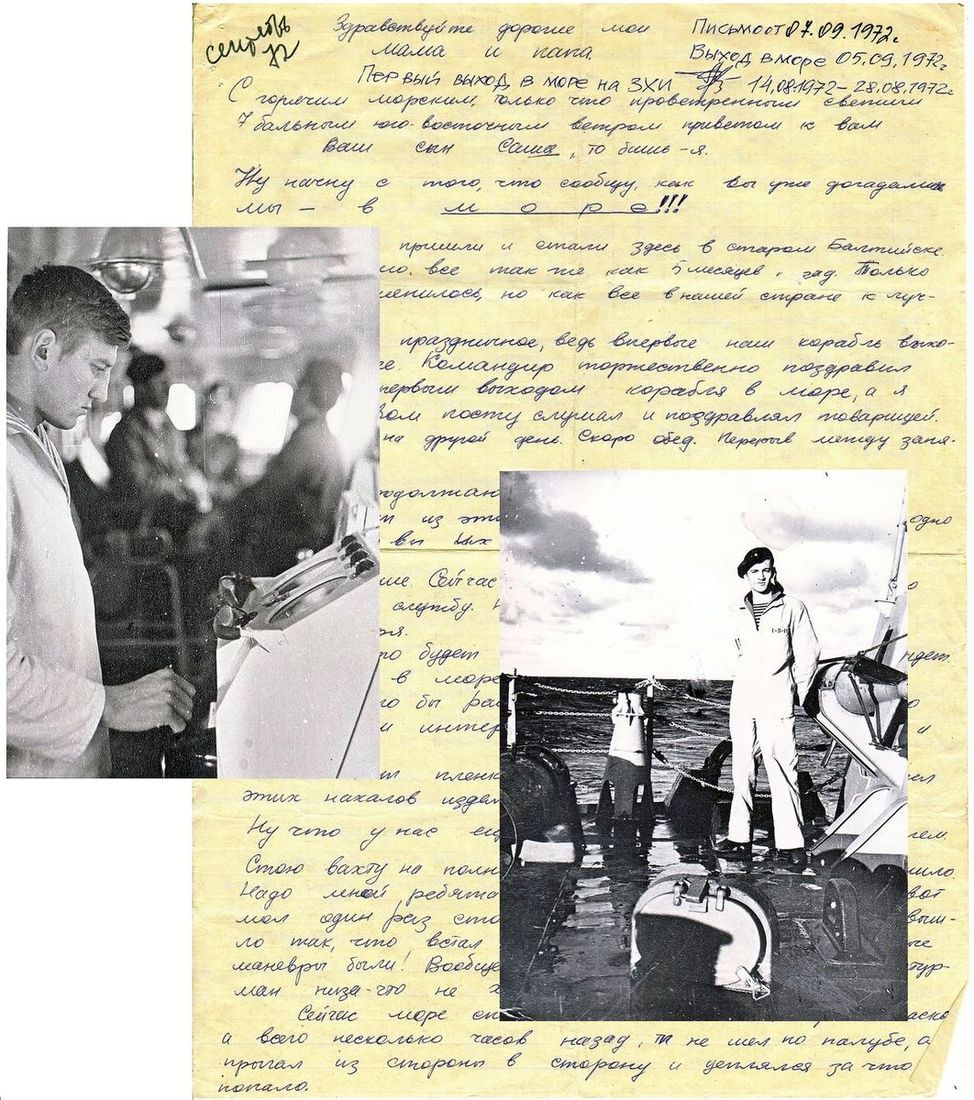 сентябрь 72
Здравствуйте дорогие мои Письмо от 07.09.1972г.
мама и папа. Выход в море 05.09.1972г
Первый выход в море на ЗХИ 14.08.1972–28.08.1972г
С горячим морским, только что проветренным свежим
7 бальным юго-восточным ветром приветом к вам
Ваш сын Саша, то бишь-я.
Ну начну с того, что сообщу, как вы уже догадались
мы – в море!!!
пришли и стали здесь в старом Балтийске.
все так же как 5 месяцев, назад. Только
менилось, но как все в нашей стране к луч-
праздничное, ведь впервые наш корабль выхо-
Командир торжественно поздравил
первым выходом корабля в море, а я
посту слушал и поздравлял товарищей.
на другой день. Скоро обед. Перерыв между заня-
из одно
вы их
Сейчас
службу.
будет
в море
бы
и интер и
пленк
этих нахалов издал
Ну что у нас ещ
Стою вахту на полн
Надо мной ребята вот
мол один раз сто выш-
ло так, что встал
маневры были! Вообще тур-
ман низа-что не х
Сейчас море сп
а всего несколько часов назад, я не шел по палубе, а
прыгал из стороны в сторону и цеплялся за что
попало.